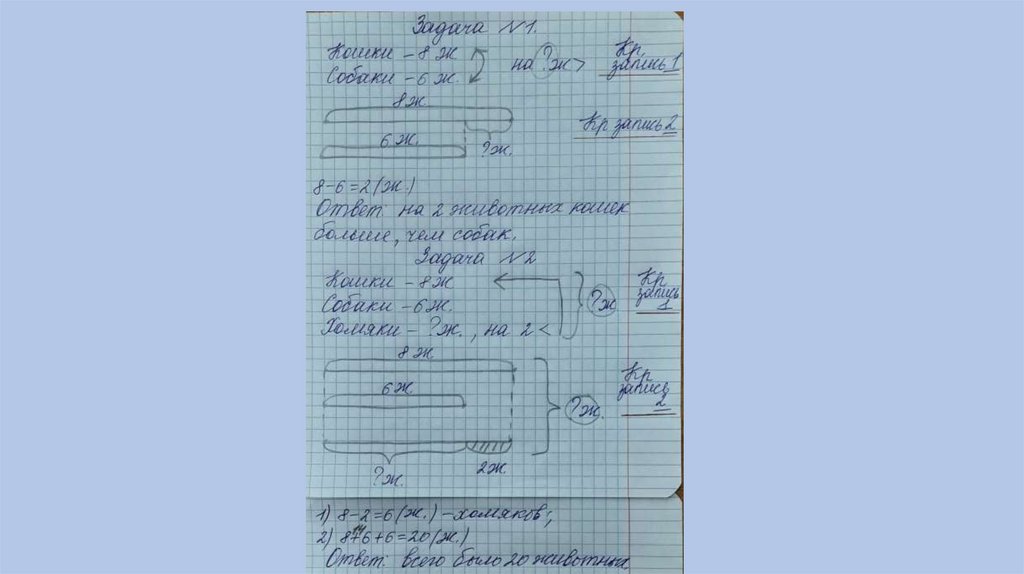 Задача №1.
Кошки – 8 ж
Собаки – 6 ж.
на ? ж >
Кр
запись 1
8 ж
6 ж.
? ж.
Кр запись 2
8-6=2 (ж.)
Ответ: на 2 животных кошек
больше, чем собак.
Задача №2
Кошки – 8 ж
Собаки – 6 ж.
Хомяки – ? ж., на 2 <
? ж
Кр
запись
1
8 ж
6 ж.
? ж.
2 ж.
? ж.
Кр
запись
2
1) 8-2=6 (ж.) – хомяков;
14
2) 8+6+6=20 (ж.)
Ответ: всего было 20 животных